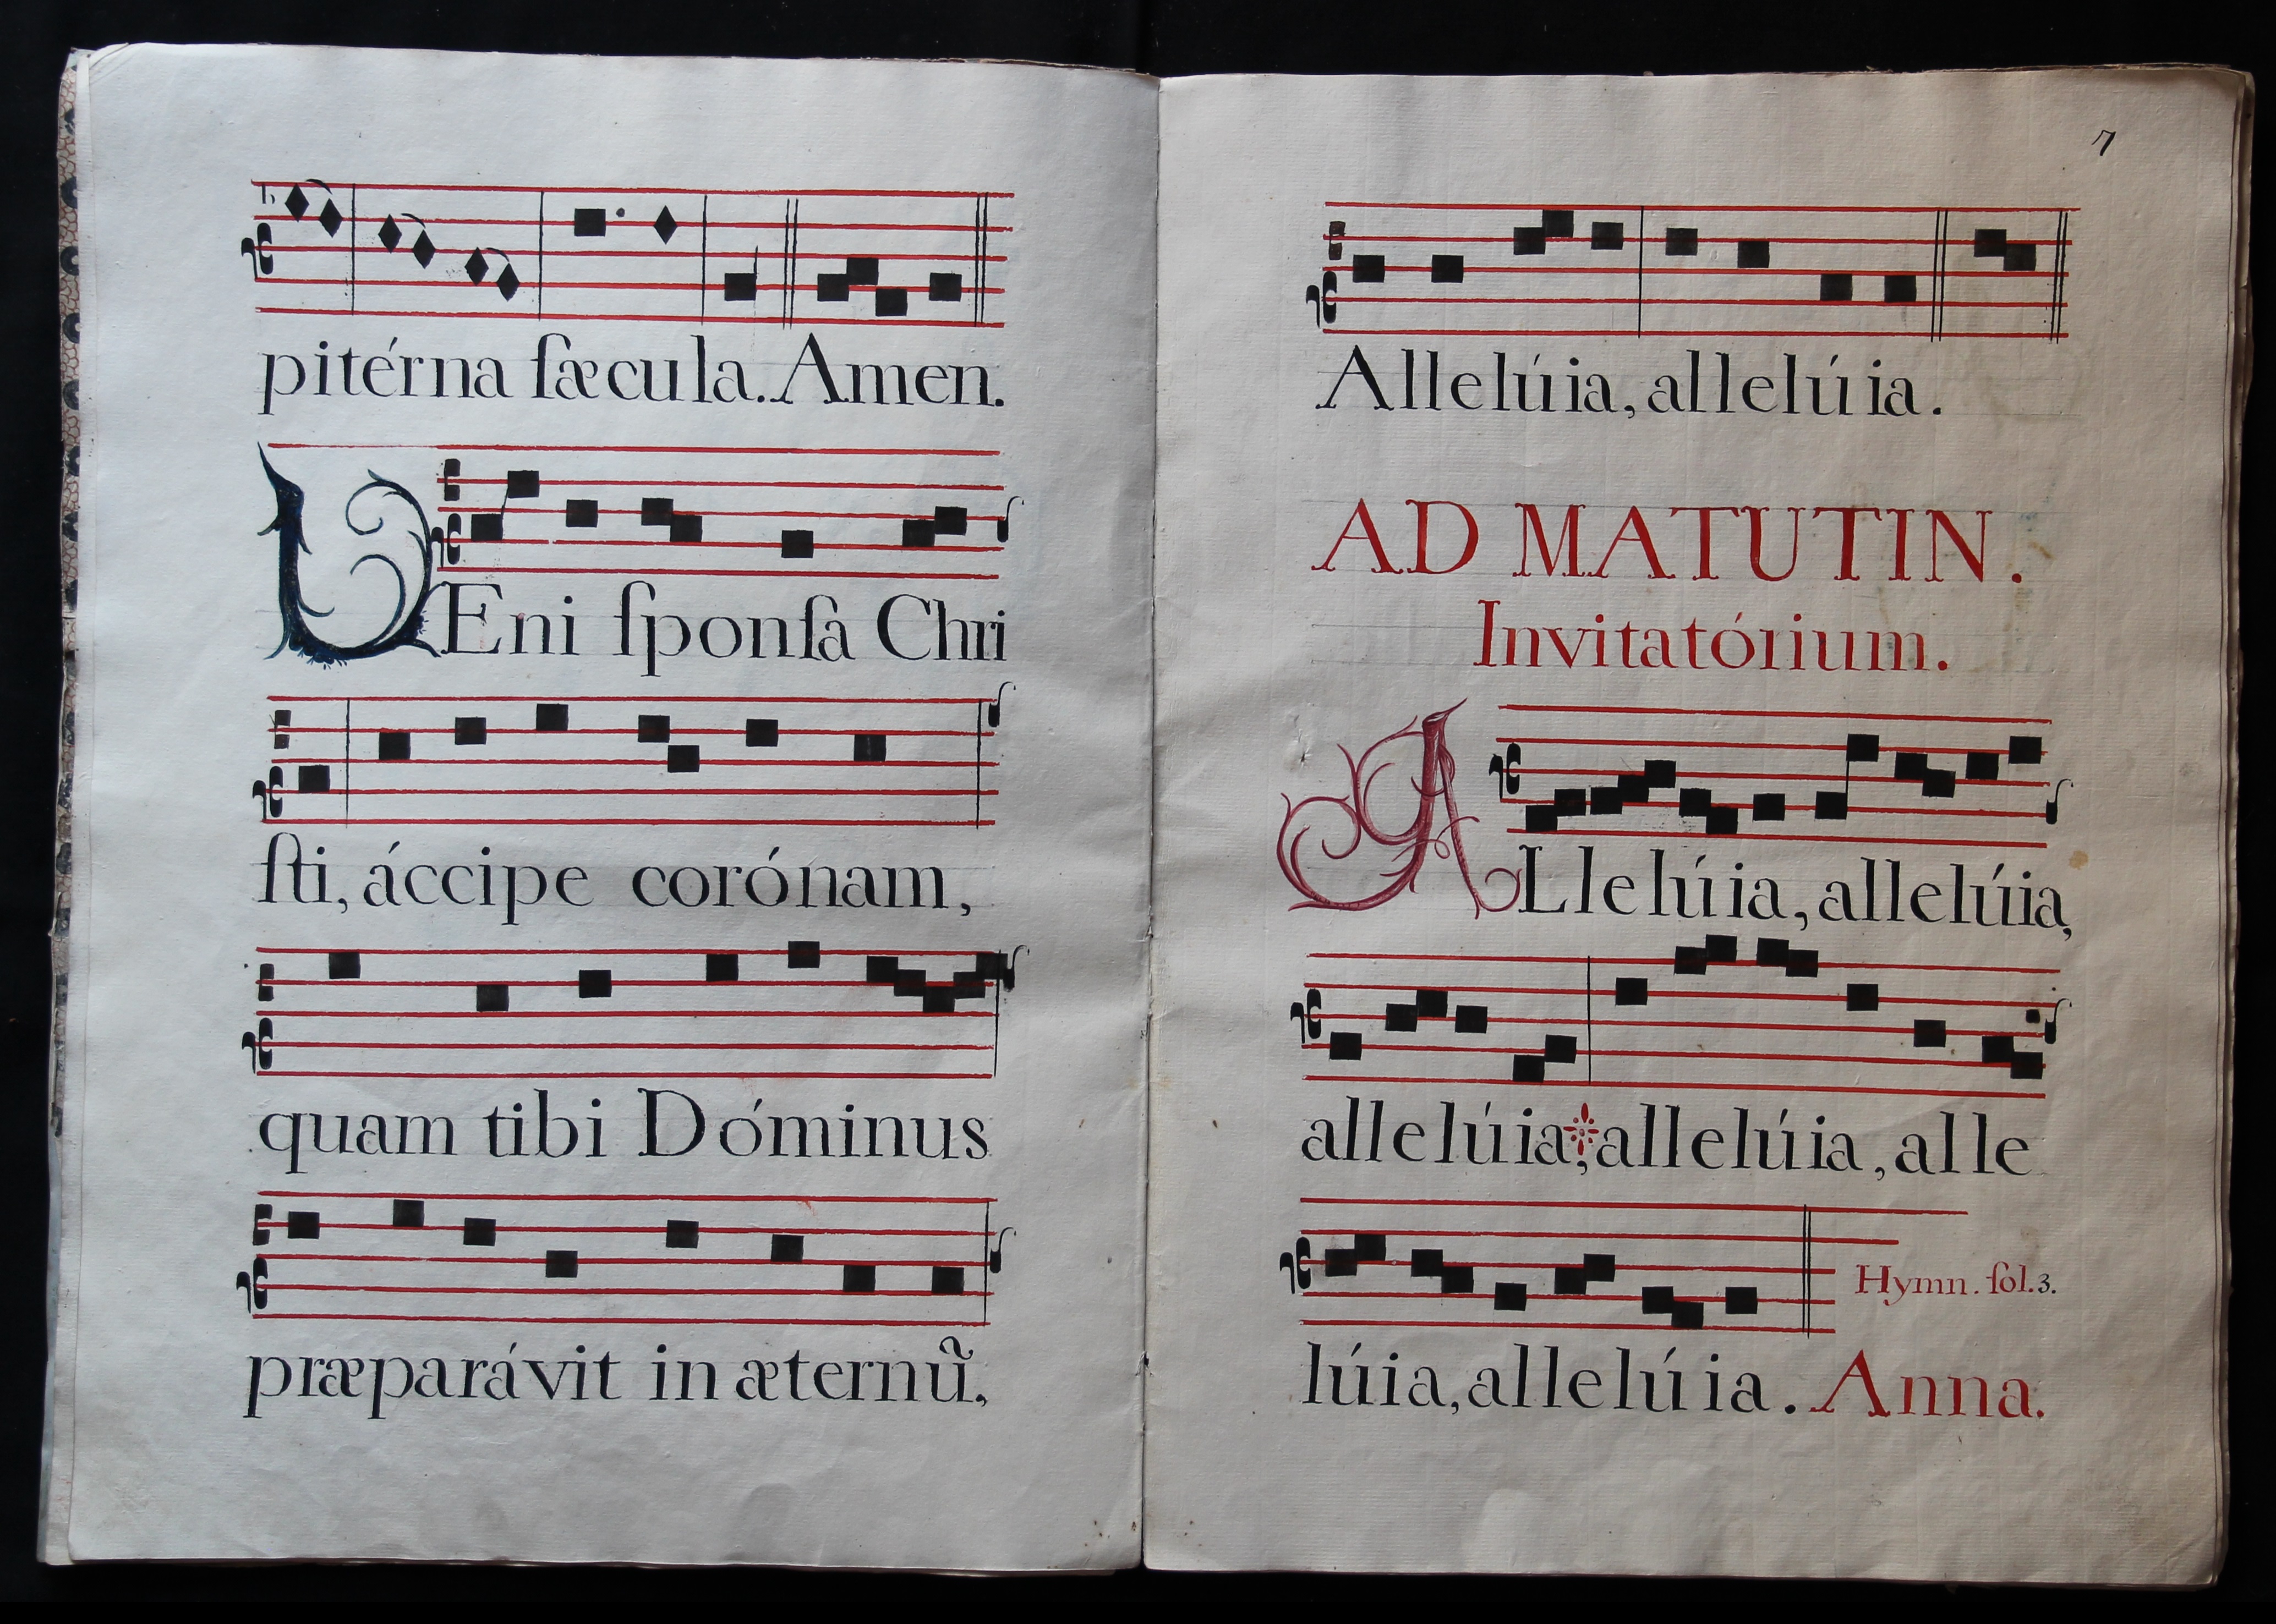 pitérna ſæcula. Amen.
VEni ſponſa Chri
ſti, áccipe corónam,
quam tibi Dóminus
præparávit in æternũ.
7
Allelúia, allelúia.
AD MATUTIN.
Invitatórium.
ALlelúia, allelúia,
allelúia, allelúia, alle
Hymn. fol. 3.
lúia, allelúia. Anna.